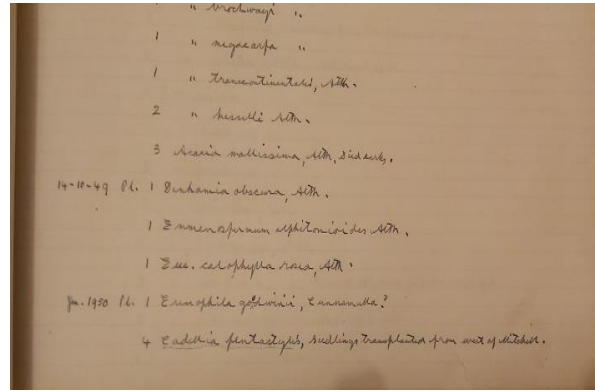 1 " brockwayi "
1 " megacarpa "
1 " transcontinentalis, Alth.
2 " kesselli Alth.
3 Acacia mollissima, Alth,
14-10-49 Pl. 1 Denhamia obscura, Alth.
1 Emmenospermum alphitonioides Alth.
1 Euc. calophylla rosea, Alth.
Jan. 1950 Pl. 1 Eremophila goodwinii, Cunnamulla?
4 Cadellia pentastylis, seedlings transplanted from west of Mitchell.